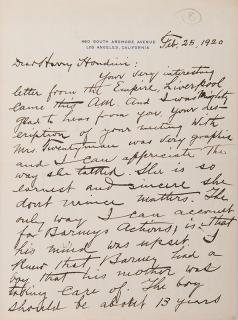 8
480 SOUTH ARDMORE AVENUE
LOS ANGELES, CALIFORNIA
Feb. 25, 1920
Dear Harry Houdini:
Your very interesting
letter from the Empire, Liverpool
came this AM. And I was mighty
Glad to hear from you. your des-
cription of your meeting with
Mrs. Twentyman was very graphic
and I can appreciate the
way she talked. She is so
earnest and sincere she
dont mince matters. The
only way I can account
for Barneys Actions, is that
his mind was upset. I
knew that Barney had a
boy that his mother was
taking care of. The boy
should be about 13 years